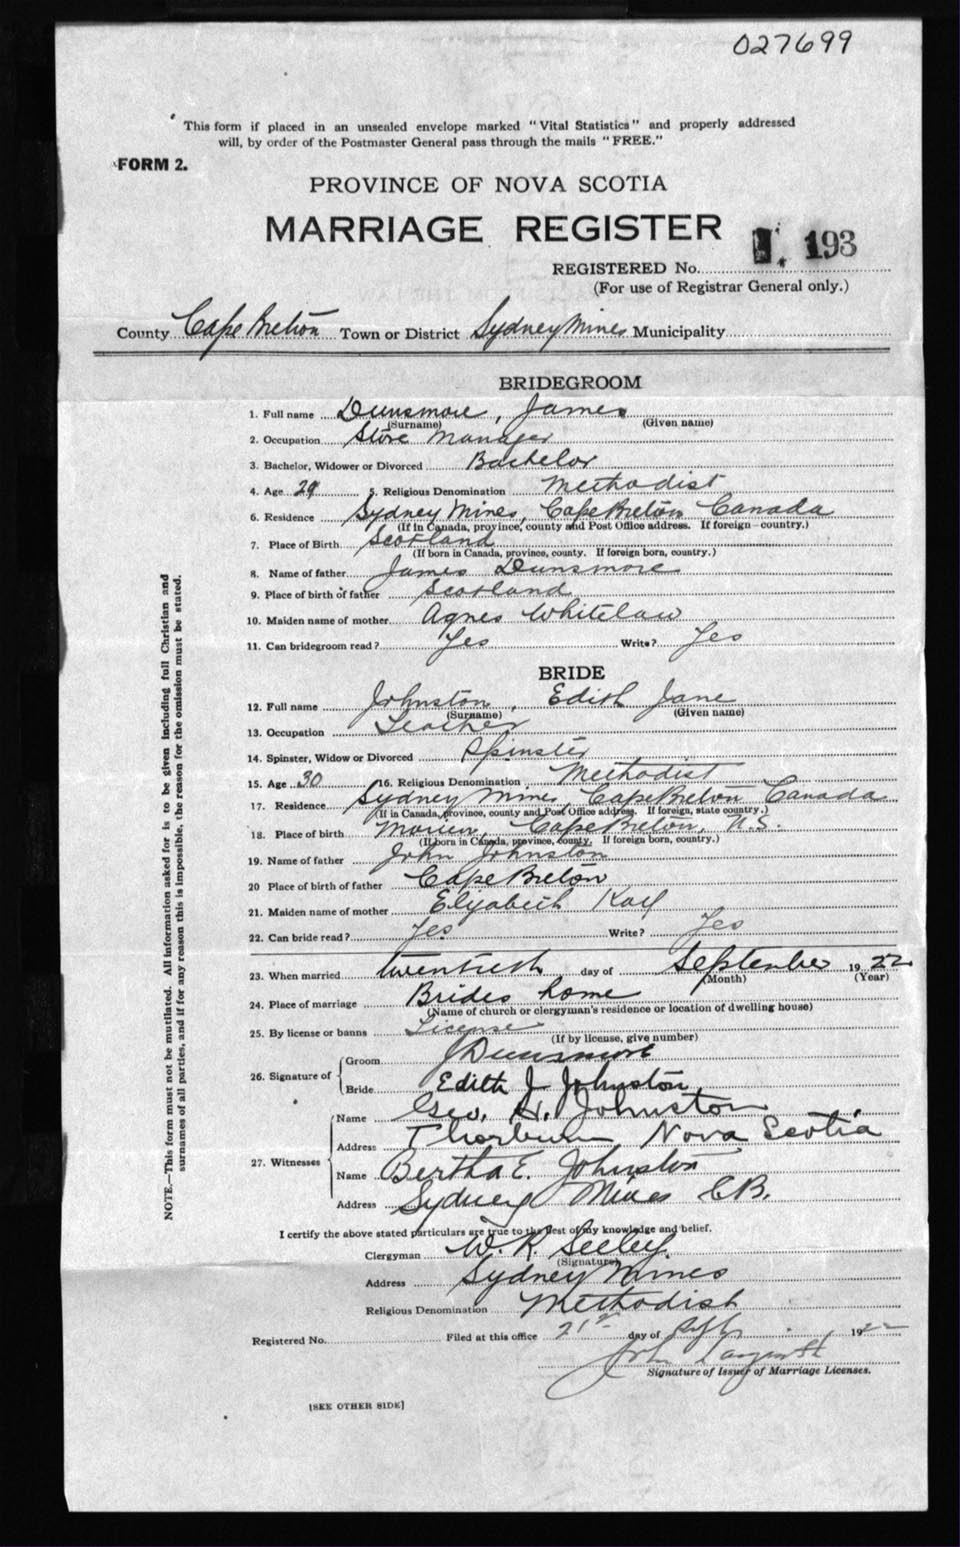 027699
This form if placed in an unsealed envelope marked "Vital Statistics" and properly addressed
will, by order of the Postmaster General pass through the mails "FREE."
FORM 2.
PROVINCE OF NOVA SCOTIA
MARRIAGE REGISTER
193
REGISTERED No.
(For use of Registrar General only.)
County Cape Breton Town or District Sydney Mines Municipality
BRIDEGROOM
1. Full name Dunsmore, James
(Surname) (Given name)
2. Occupation Store Manager
3. Bachelor, Widower or Divorced Bachelor
4. Age 29 5. Religious Denomination Methodist
6. Residence Sydney Mines, Cape Breton Canada
(If in Canada, province, county and Post Office address. If foreign country.)
7. Place of Birth Scotland
(If born in Canada, province, county. If foreign born, country.)
8. Name of father James Dunsmore
9. Place of birth of father Scotland
10. Maiden name of mother Agnes Whitelaw
11. Can bridegroom read? Yes Write? Yes
BRIDE
12. Full name Johnston, Edith Jane
(Surname) (Given name)
13. Occupation Teacher
14. Spinster, Widow or Divorced Spinster
15. Age 30 16. Religious Denomination Methodist
17. Residence Sydney Mines, Cape Breton Canada
(If in Canada, province, county and Post Office address. If foreign, state country.)
18. Place of birth Morien, Cape Breton, N.S.
(If born in Canada, province, county. If foreign born, country.)
19. Name of father John Johnston
20 Place of birth of father Cape Breton
21. Maiden name of mother Elizabeth
22. Can bride read? Yes Write? Yes
23. When married twentieth day of September 1922
(Month) (Year)
24. Place of marriage Brides home
(Name of church or clergyman's residence or location of dwelling house)
25. By license or banns License
(If by license, give number)
26. Signature of Groom J Dunsmore
Bride Edith J Johnston
27. Witnesses Name Geo. H. Johnston
Address Thorburn, Nova Scotia
Name Bertha E. Johnston
Address Sydney Mines C.B.
I certify the above stated particulars are true to the best of my knowledge and belief.
Clergyman W. R. Seeley.
(Signature)
Address Sydney Mines
Religious Denomination Methodist
Registered No. Filed at this office 21st day of Sept 1922
John
Signature of Issuer of Marriage Licenses.
[SEE OTHER SIDE]
NOTE.—This form must not be mutilated. All information asked for is to be given including full Christian and
surnames of all parties, and if for any reason this is impossible, the reason for the omission must be stated.